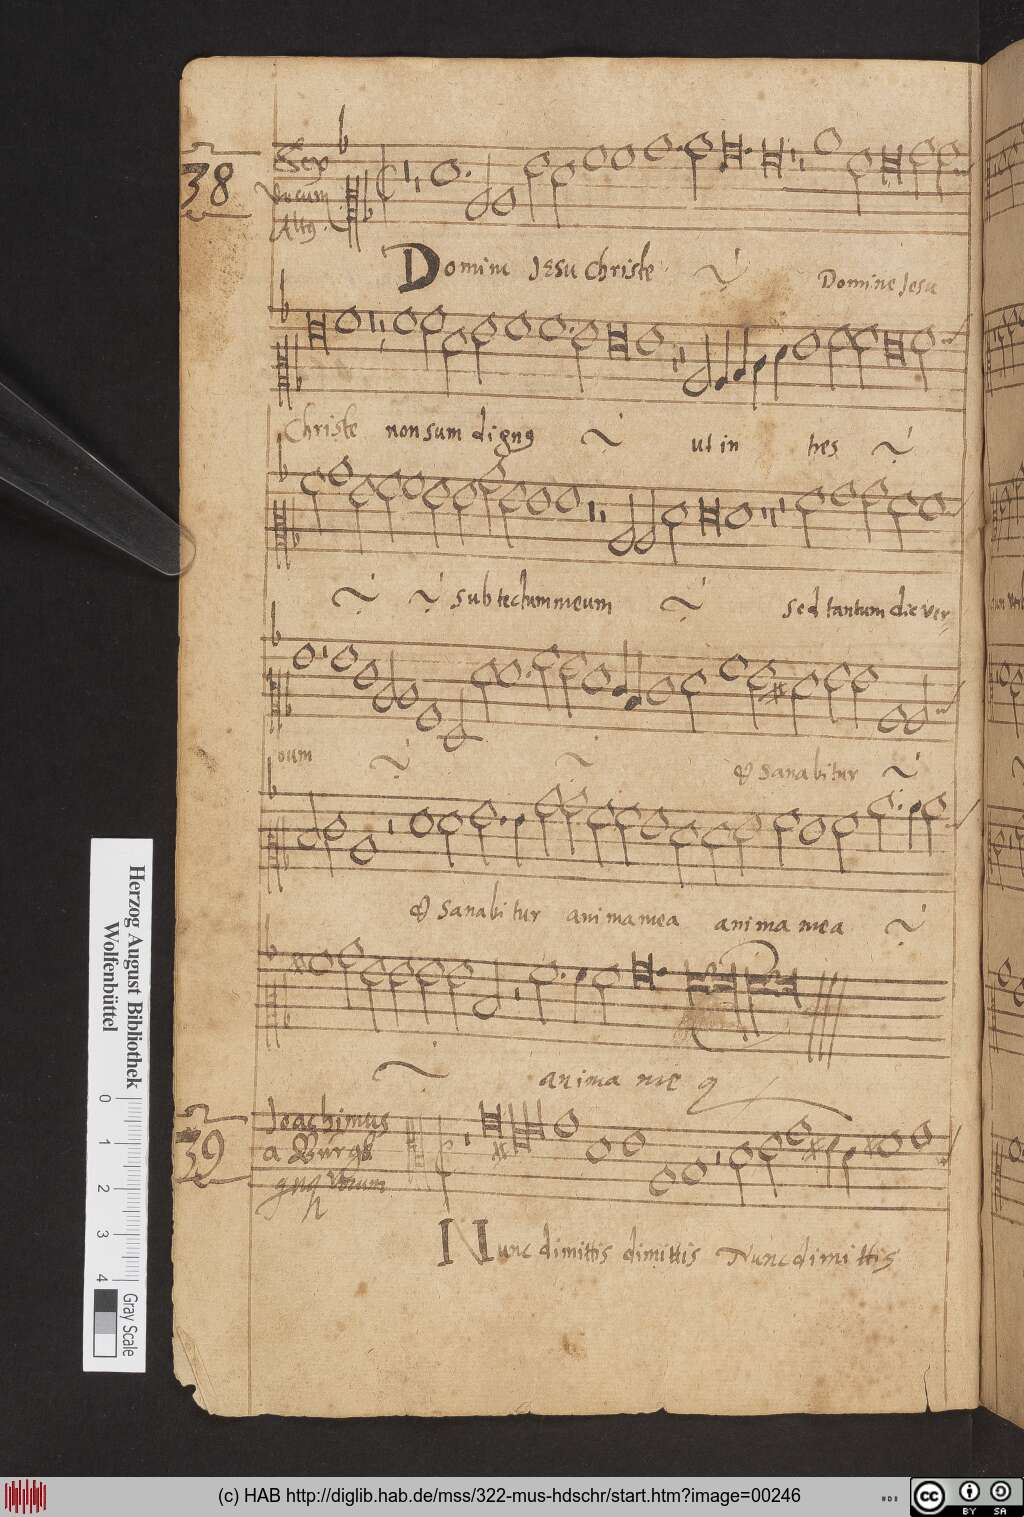 38
Sex
vocum
Altus
Domine JESu Christe
Domine Jesu
Christe non sum dignus
ut in
tres
sub tectum meum
sed tantum dic ver-
bum
& sanabitur
& sanabitur anima mea anima mea
anima mea
39
Joachimus
a Burgk
vocum
Nunc dimittis dimittis Nunc dimittis
Herzog August Bibliothek
Wolfenbüttel
0 1 2 3 4
Gray Scale
(c) HAB http://diglib.hab.de/mss/322-mus-hdschr/start.htm?image=00246
cc
BY SA